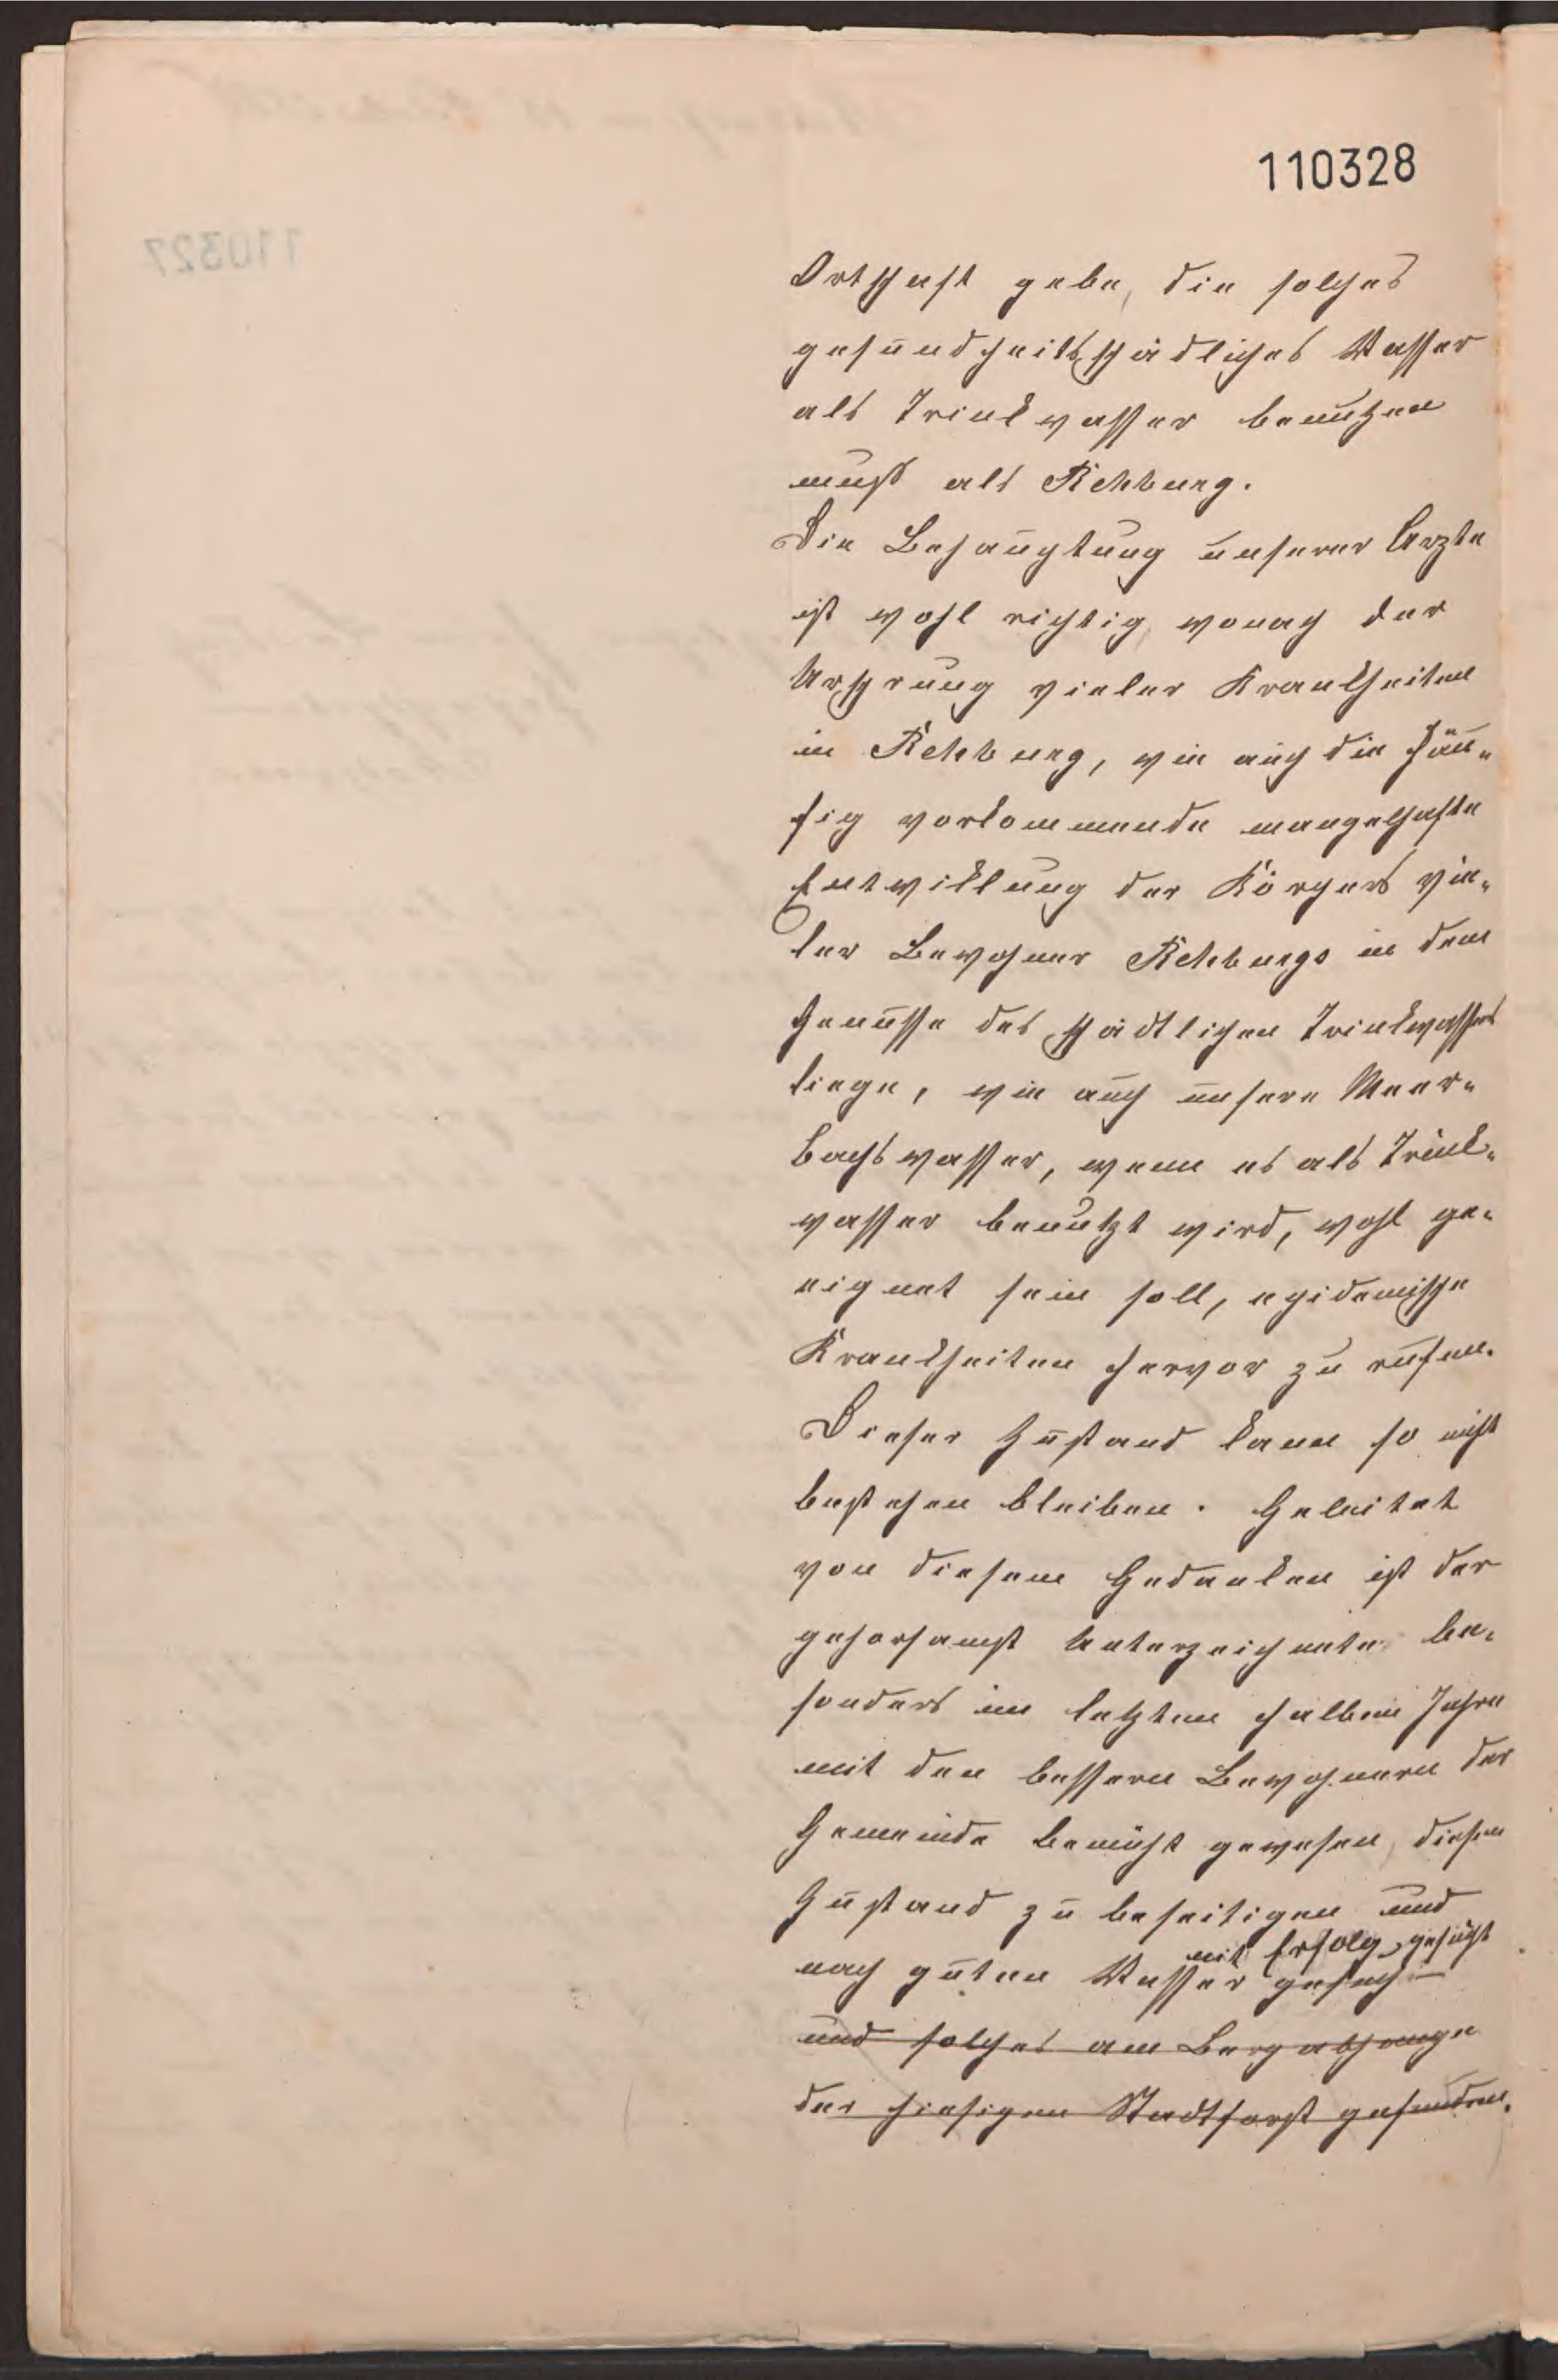 110328
Ortschaft gebe, die solches
gesundheitsschädliches Wasser
als Trinkwasser benutzen
muß als Rehburg.
Die Behauptung unserer Ärzte
ist wohl richtig, wonach der
Ursprung vieler Krankheiten
in Rehburg, wie auch die häu-
fig vorkommende mangelhafte
Entwicklung der Körpers vie-
ler Bewohner Rehburgs in dem
Genusse des schädlichen Trinkwassers
liege, wie auch unsere Meer-
bachswasser, wenn es als Trink-
wasser benutzt wird, wohl ge-
eignet sein soll, epidemische
Krankheiten hervor zu rufen.
Dieser Zustand kann so nicht
bestehen bleiben. Geleitet
von diesem Gedanken ist der
gehorsamst Unterzeichnete be-
sonders im letzten halben Jahre
mit den bessern Bewohnern der
Gemeinde bemüht gewesen, diesen
Zustand zu beseitigen und
mit Erfolg gesucht
nach guten Wasser gesuch
und solches am Bergabhange
der hiesigen Stadtforst gefunden.
110327